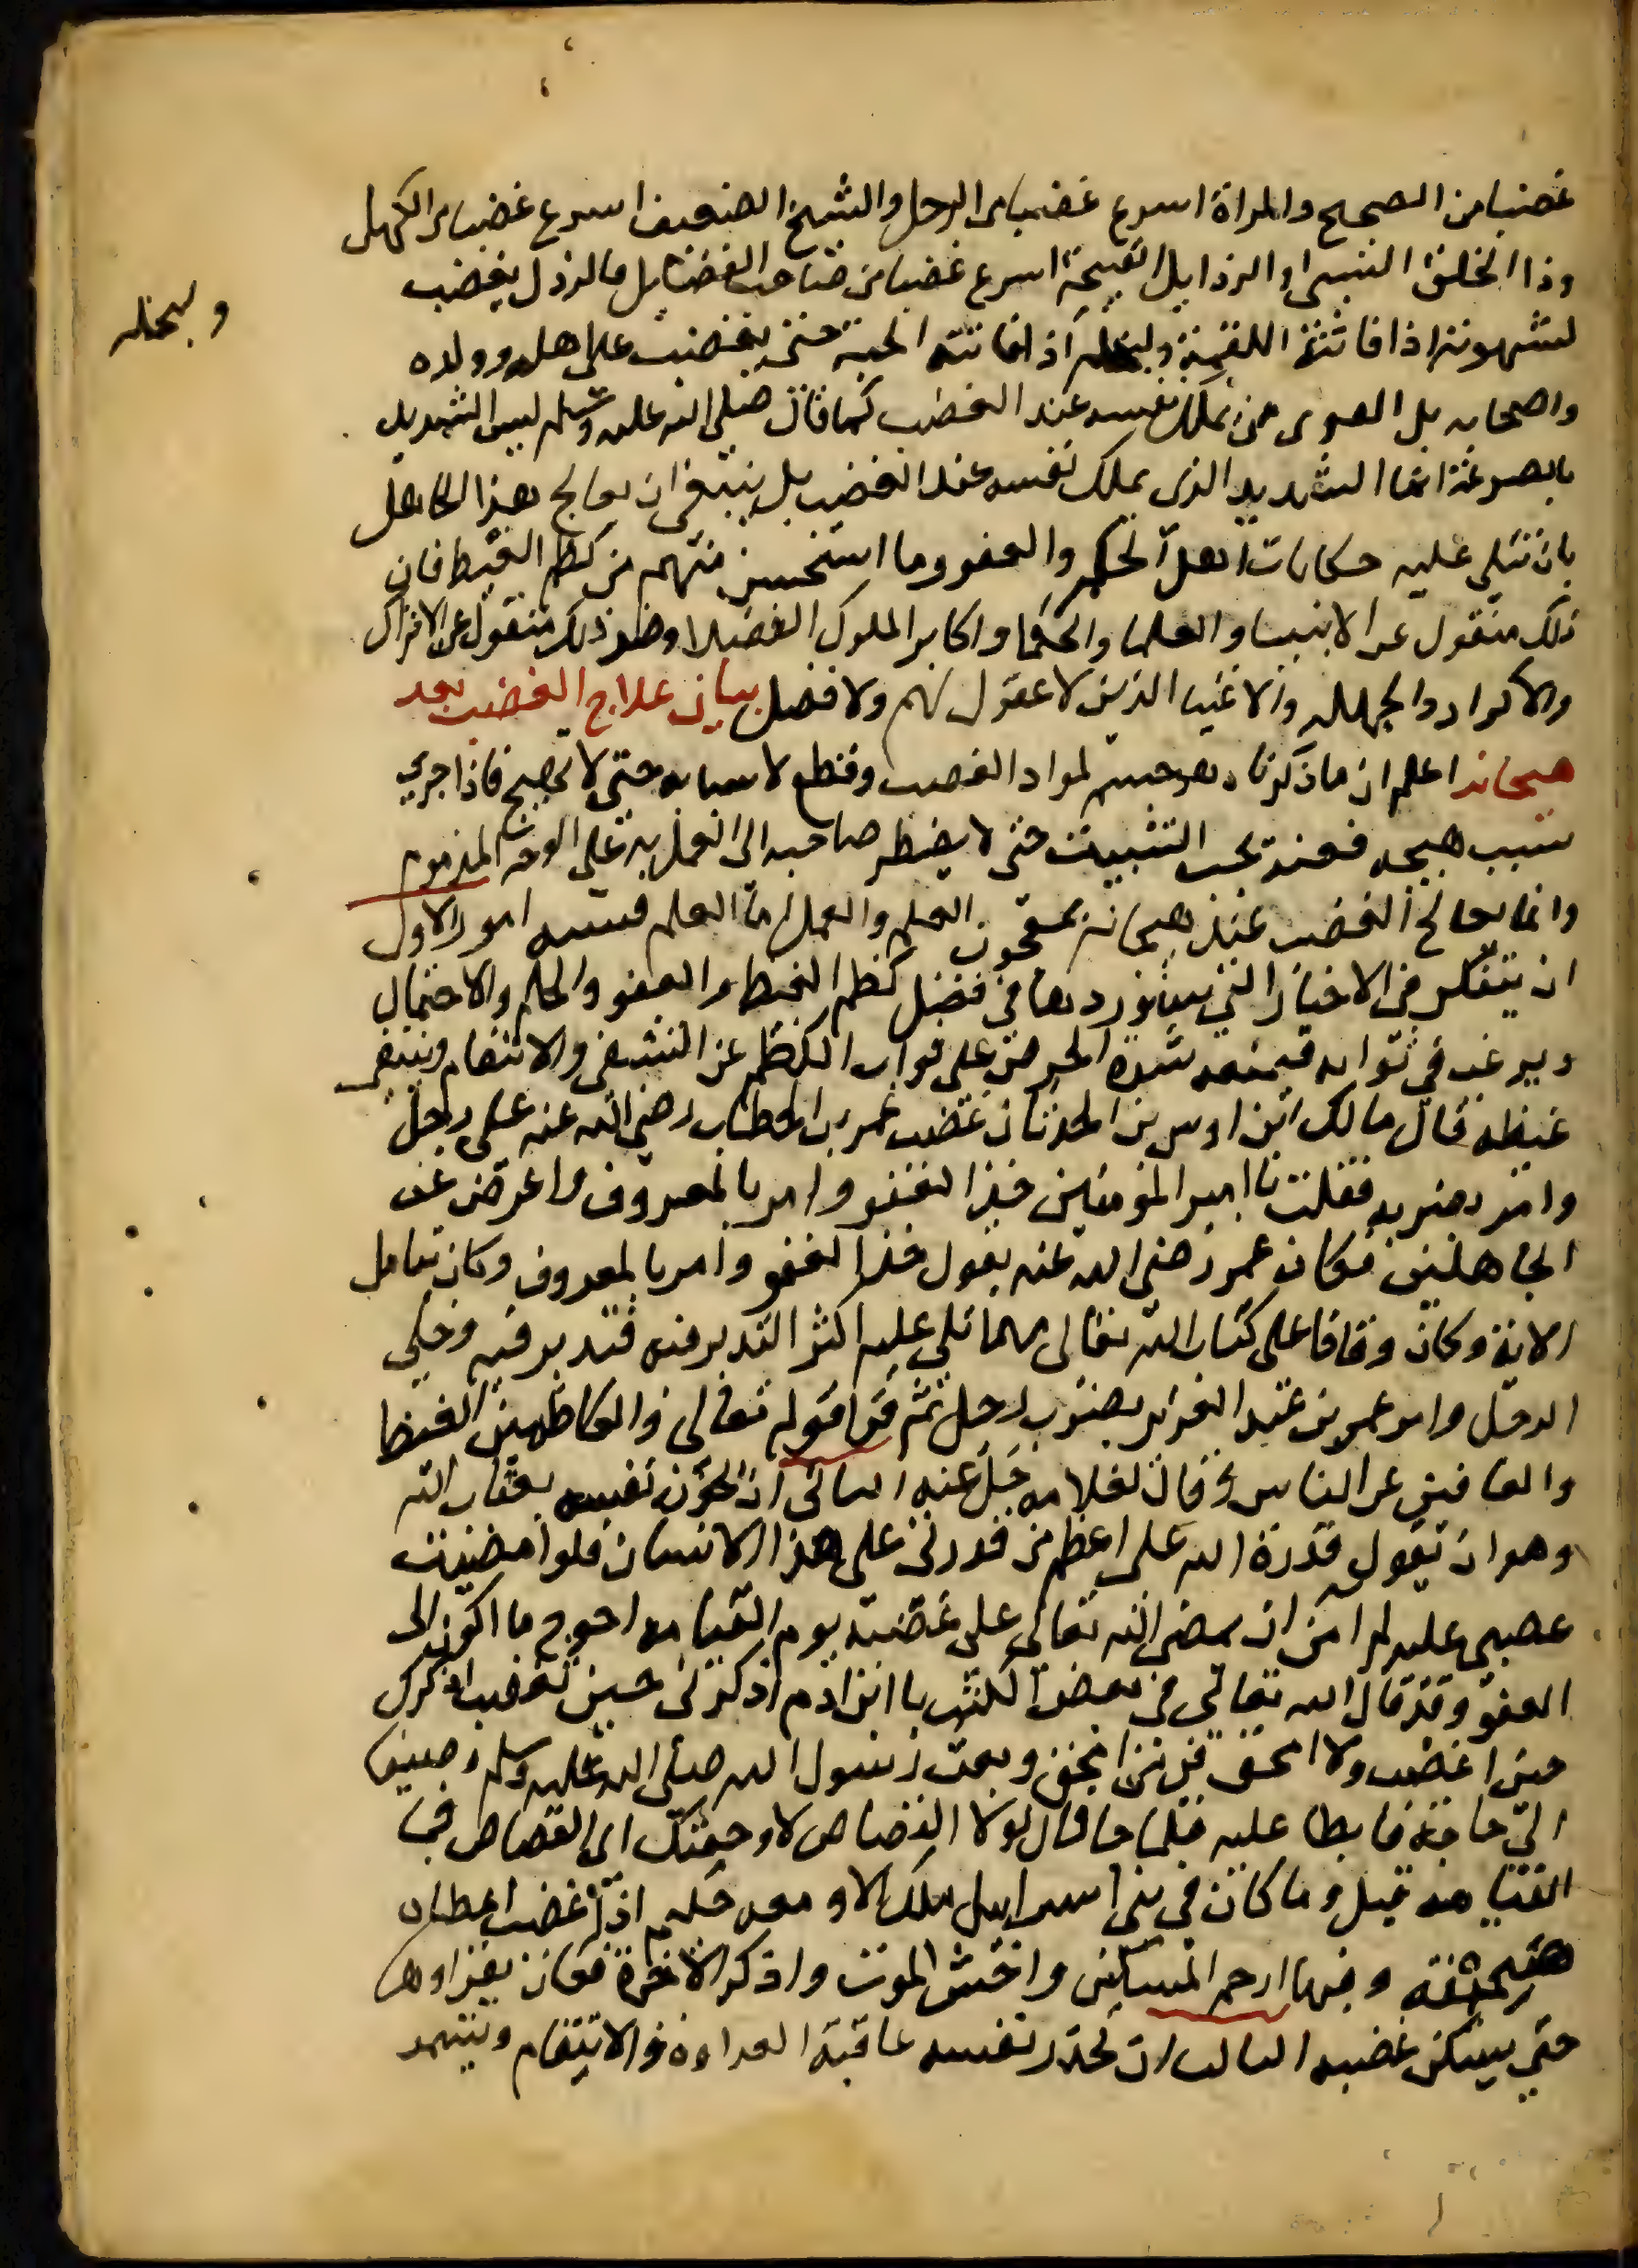 غضبا من الصحيح والمراة اسرع غضبا من الرجل والشيخ الضعيف اسرع غضبا من الكهل
وذا الخلق السىء والرذايل القبيحة اسرع غضبا من صاحب الفضايل فالرذل يغضب
لشهوته اذا فاتته اللقمة ولبخله اذا فاتته الحبة حتى يغضب على اهله وولده
ولبخله
واصحابه بل القوى من يملك نفسه عند الغضب كما قال صلى الله عليه وسلم ليس الشديد
بالصرعة انما الشديد الذى يملك نفسه عند الغضب بل ينبغى ان يعالج هذا الجاهل
بان تتلى عليه حكايات اهل الحلم والعفو وما استحسن منهم من كظم الغيظ فان
ذلك منقول عن الانبيا والعلما والحكما واكابر الملوك الفضلا وضد ذلك منقول عن الاتراك
والاكراد والجهله والاغبيا الذين لا عقول لهم ولا فضل بيان علاج الغضب بعد
هيجانه اعلم ان ما ذكرناه هو حسم لمواد الغضب وقطع لاسبابه حتى لا يهيج فاذا جرى
سبب هيجه فعنده يجب التثبيت حتى لا يضطر صاحبه الى العمل به على الوجه المذموم
وانما يعالج الغضب عند هيجانه بمعجون العلم والعمل اما العلم فسته امور الاول
ان يتفكر فى الاخبار التى سنوردها فى فضل كظم الغيظ والعفو والحلم والاحتمال
ويرغب فى ثوابه فيمنعه شدة الحرص على ثواب الكظم عن التشفى والانتقام وينطفى
غيظه قال مالك ابن اوس بن الحدثان غضب عمر بن الخطاب رضى الله عنه على رجل
وامر بضربه فقلت يا امير المومنين خذ العفو وامر بالمعروف واعرض عن
الجاهلين فكان عمر رضى الله عنه يقول خذ العفو وامر بالمعروف وكان يتامل
الاية وكان وقافا على كتاب الله تعالى مهما تلى عليه اكثر التدبر منه فتدبر فيه وخلى
الرجل وامر عمر بن عبد العزيز بضرب رجل ثم قرا قوله تعالى والكاظمين الغيظ
والعافين عن الناس وقال لغلامه خل عنه الثانى ان يخوف نفسه بعقاب الله
وهو ان يقول قدرة الله على اعظم من قدرتى على هذا الانسان فلو امضيت
غضبى عليه لم امن ان يمضى الله تعالى على غضبه يوم القيامه احوج ما اكون الى
العفو وقد قال الله تعالى فى بعض الكتب يا ابن ادم اذكرنى حين تغضب اذكرك
حين اغضب ولا امحقك فيمن امحق وبعث رسول الله صلى الله عليه وسلم وصيفا
الى حاجة فابطا عليه فلما جا قال لولا القصاص لاوجعتك اى القصاص فى
القيامه قيل وما كان فى بنى اسراييل ملك الا ومعه حكيم اذا غضب اعطاه
صحيفة وفيها ارحم المسكين واخش الموت واذكر الاخرة فكان يقراوها
حتى يسكن غضبه الثالث ان يحذر نفسه عاقبة العداوة والانتقام وتشمر